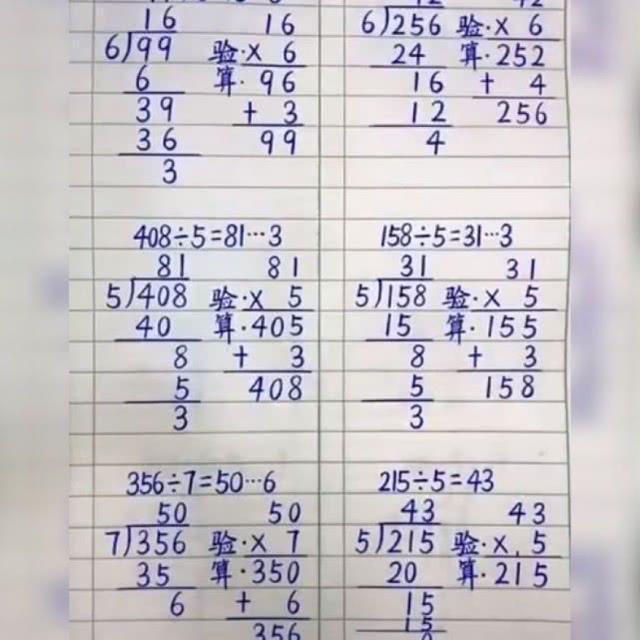 16 16
6)99 验·× 6
6 算·96
39 + 3
36 99
3
6)256 验·× 6
24 算·252
16 + 4
12 256
4
408÷5=81…3
81 81
5)408 验·× 5
40 算·405
8 + 3
5 408
3
158÷5=31…3
31 31
5)158 验·× 5
15 算·155
8 + 3
5 158
3
356÷7=50…6
50 50
7)356 验·× 7
35 算·350
6 + 6
356
215÷5=43
43 43
5)215 验·× 5
20 算·215
15
15
0